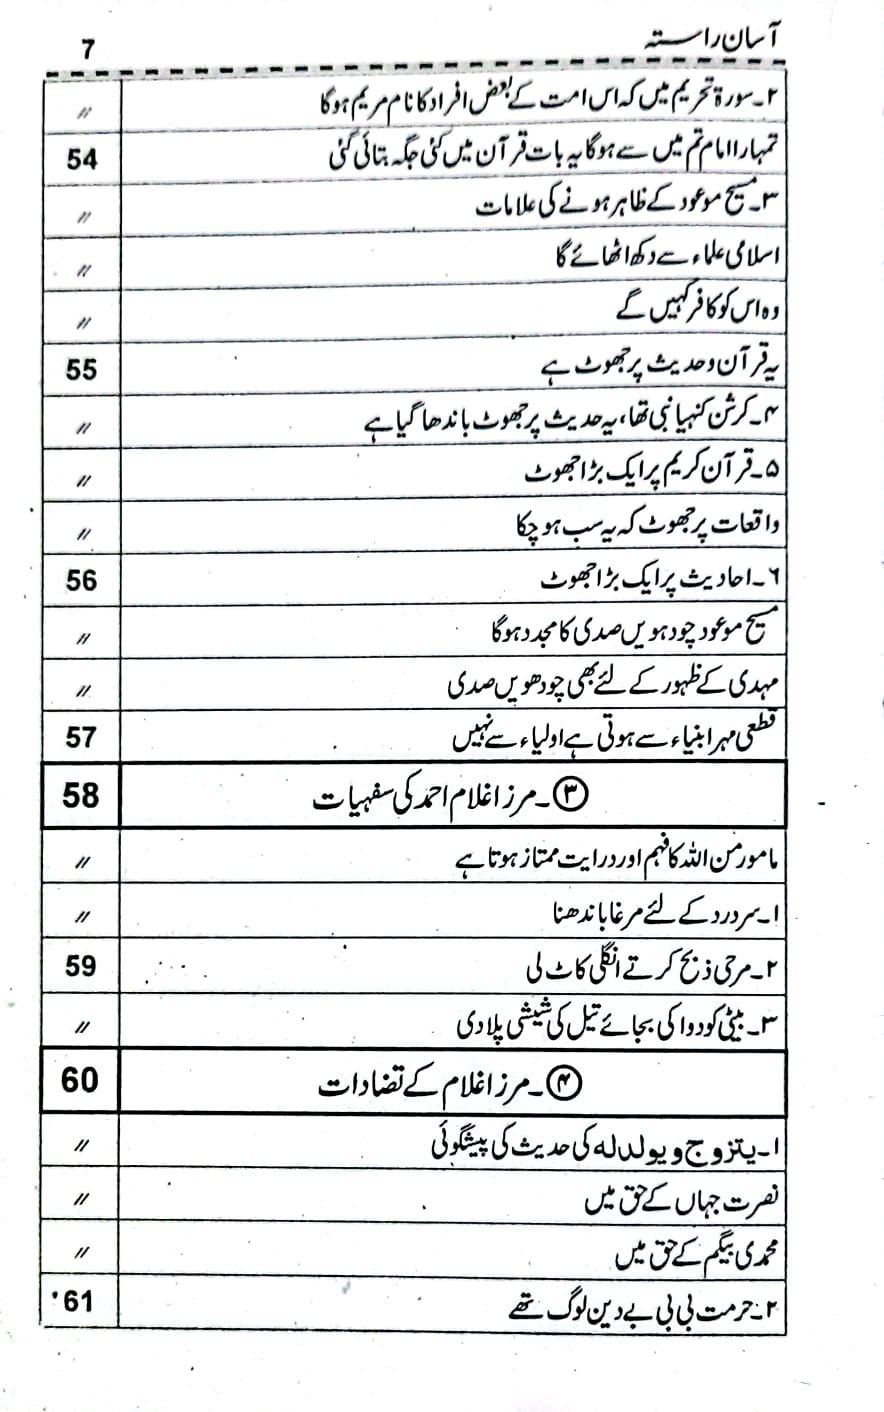 آسان راستہ 7
۲۔ سورۃ تحریم میں کہ اس امت کے بعض افراد کا نام مریم ہوگا 〃
تمہارا امام تم میں سے ہوگا یہ بات قرآن میں کئی جگہ بتائی گئی 54
۳۔ مسیح موعود کے ظاہر ہونے کی علامات 〃
اسلامی علماء سے دکھ اٹھائے گا 〃
وہ اس کو کافر کہیں گے 〃
یہ قرآن و حدیث پر جھوٹ ہے 55
۴۔ کرشن کنہیا نبی تھا، یہ حدیث پر جھوٹ باندھا گیا ہے 〃
۵۔ قرآن کریم پر ایک بڑا جھوٹ 〃
واقعات پر جھوٹ کہ یہ سب ہو چکا 〃
۶۔ احادیث پر ایک بڑا جھوٹ 56
مسیح موعود چودہویں صدی کا مجدد ہوگا 〃
مہدی کے ظہور کے لئے بھی چودھویں صدی 〃
قطعی مہر ابنیاء سے ہوتی ہے اولیاء سے نہیں 57
③۔ مرزا غلام احمد کی سفہیات 58
مامور من اللہ کا فہم اور درایت ممتاز ہوتا ہے 〃
۱۔ سر درد کے لئے مرغا باندھنا 〃
۲۔ مرحی ذبح کرتے انگلی کاٹ لی 59
۳۔ بیٹی کو دوا کی بجائے تیل کی شیشی پلا دی 〃
④۔ مرزا غلام کے تضادات 60
۱۔ یتزوج ویولدلہ کی حدیث کی پیشگوئی 〃
نصرت جہاں کے حق میں 〃
محمدی بیگم کے حق میں 〃
۲۔ حرمت بی بی بے دین لوگ تھے 61